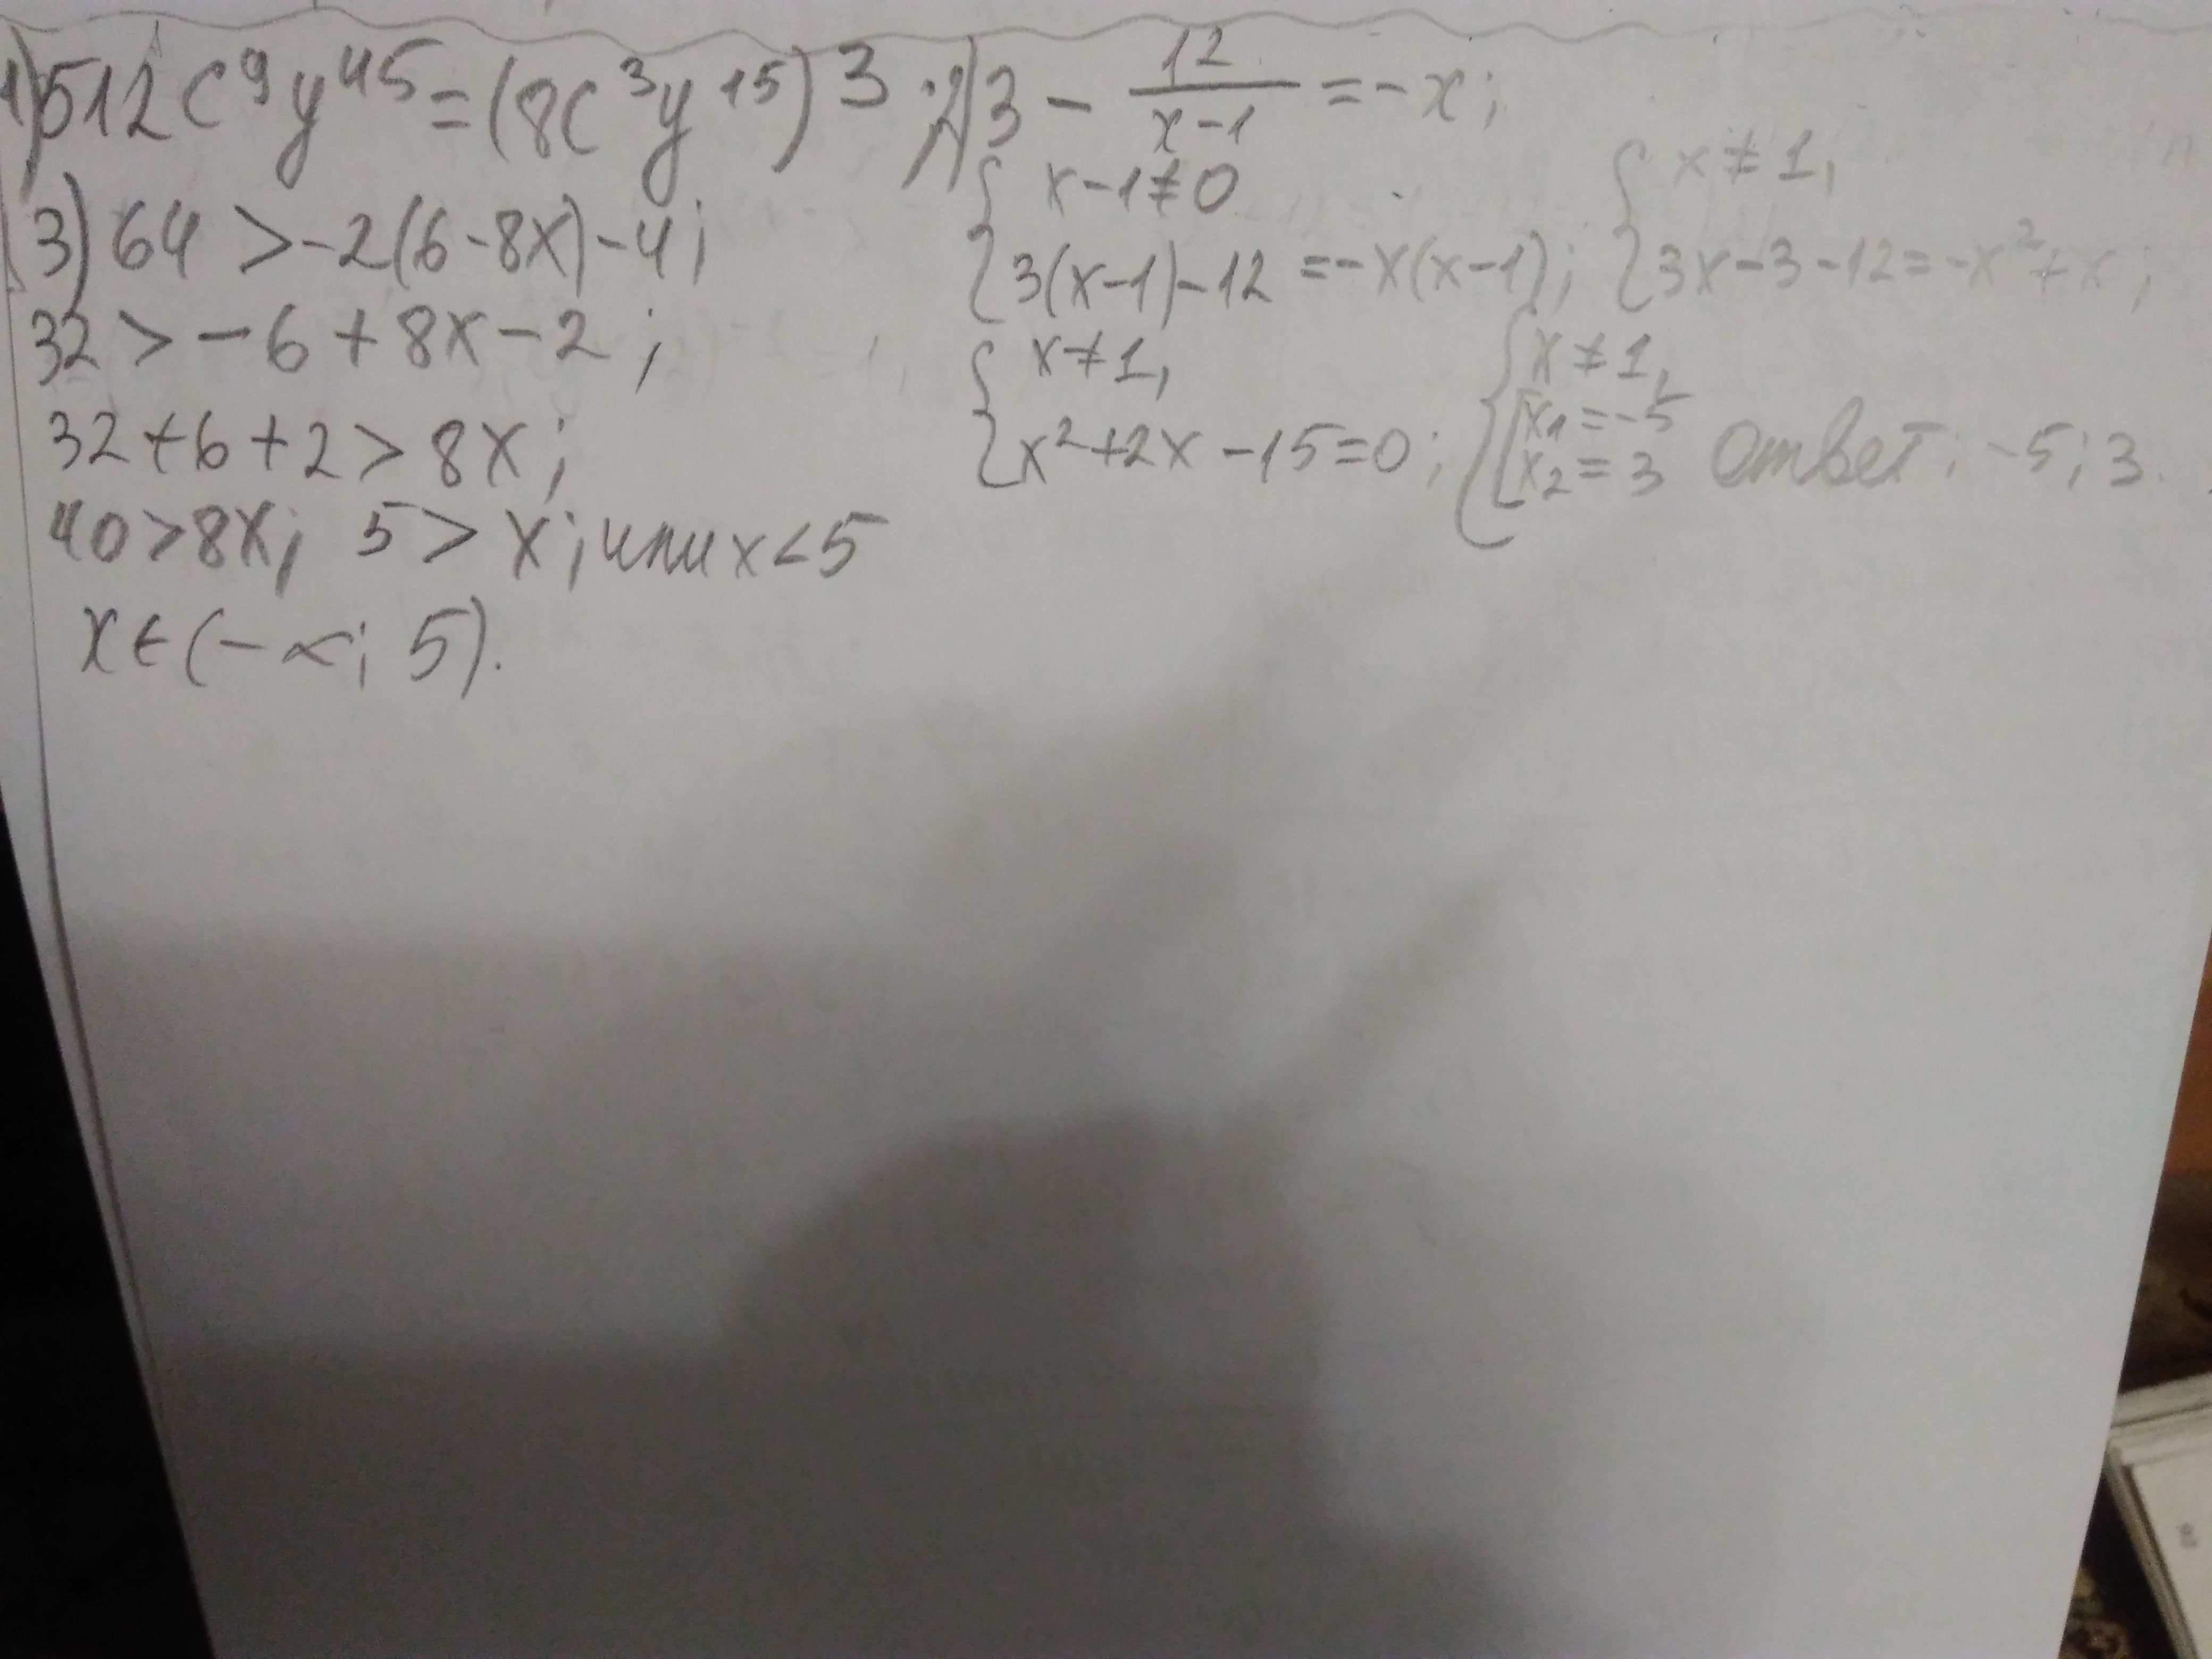 1) 512c⁹y⁴⁵ = (8c³y¹⁵)³; 2) 3 - 12/(x-1) = -x;
{ x-1≠0
{ 3(x-1)-12 = -x(x-1); { x≠1,
{ 3x-3-12 = -x²+x;
{ x≠1,
{ x²+2x-15=0; { x≠1,
[ x₁ = -5
[ x₂ = 3 Ответ: -5; 3.
3) 64 > -2(6-8x)-4;
32 > -6+8x-2;
32+6+2 > 8x;
40>8x; 5 > x; или x<5
x∈(-∞; 5).